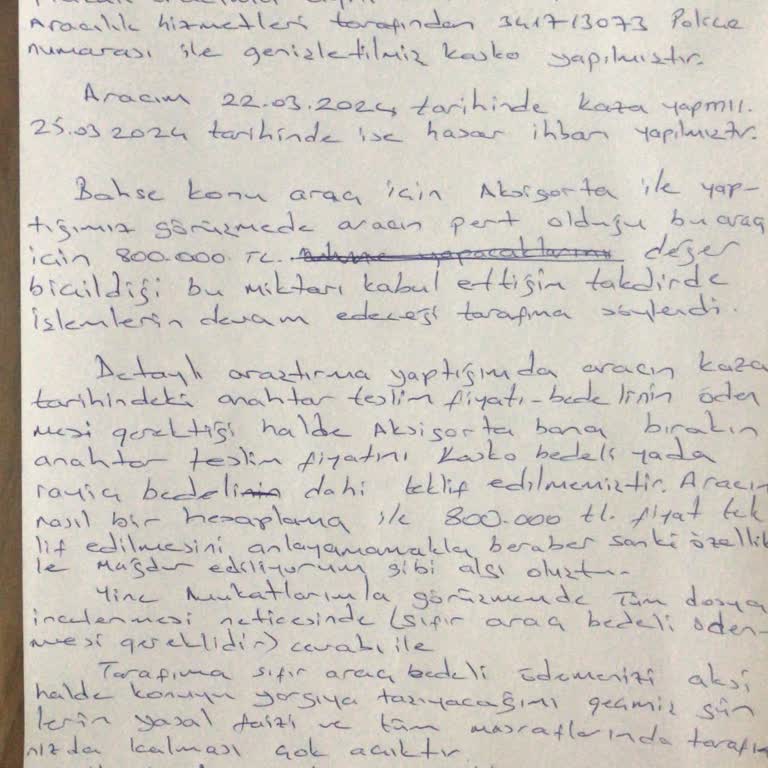 Aracılık hizmetleri tarafından 341713073 Police
numarası ile genişletilmiş kasko yapılmıştır.
Aracım 22.03.2024 tarihinde kaza yapmış.
25.03 2024 tarihinde ise hasar ihbarı yapılmıştır.
Bahse konu araç için Aksigorta ile yap-
tığımız görüşmede aracın pert olduğu bu araç
için 800.000 TL. değer
biçildiği bu miktarı kabul ettiğim takdirde
işlemlerin devam edeceği tarafıma söylendi.
Detaylı araştırma yaptığımda aracın kaza
tarihindeki anahtar teslim fiyatı-bedelinin öden
mesi gerektiği halde Aksigorta bana bırakın
anahtar teslim fiyatını kasko bedeli yada
rayiç bedelinin dahi teklif edilmemiştir. Aracın
nasıl bir hesaplama ile 800.000 tl. fiyat tek
lif edilmesini anlayamamakla beraber sanki özellik
le mağdur ediliyorum gibi algı oluştu.
Yine Avukatlarımla görüşmemde Tüm dosya
incelenmesi neticesinde (sıfır araç bedeli öden-
mesi gereklidir) cevabı ile
Tarafıma sıfır araç bedeli ödemenizi aksi
halde konuyu yargıya taşıyacağımı geçmiş gün
lerin yasal faizi ve tüm masraflarında tarafı
nızda kalması çok açıktır